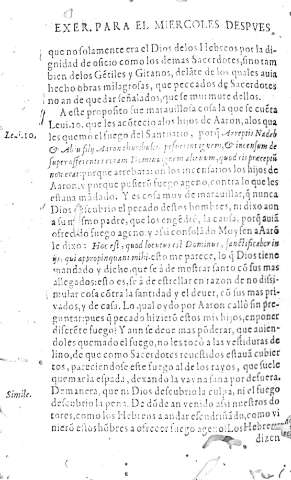 EXER. PARA EL MIERCOLES DESPVES
que no solamente era el Dios de los Hebreos por la di-
gnidad de oficio como los demas Sacerdotes, sino tam
bien delos Gẽtiles y Gitanos, delãte de los quales auia
hecho obras milagrosas, que peccados de Sacerdotes
no an de que dar señalados, que se murmure dellos.
A este proposito fue marauillosa cosa la que se cuẽta
Leui. 10.
Leui.10. que les acõtecio alos hijos de Aaron, alos qua
les quemò el fuego del Santuario, porq̃, Arreptis Nadab
& Abiu filij Aaron thuribulis, posuerunt ignem, & incensum de
super offerentes coram Domino ignem alienum, quod eis præceptũ
non erat: porque arrebataron los incensarios los hijos de
Aaron, y porque pusierõ fuego ageno, contra lo que les
estaua mãdado. Y es cosa muy de marauillar, q̃ nunca
Dios descubrio el peccado destos hombres, ni dixo aun
a su mismo padre, que los engẽdrò, la causa, porq̃ auiã
ofrecido fuego ageno, y assi consolãdo Moysen a Aarõ
le dixo: Hoc est, quod locutus est Dominus, sanctificabor in
ijs, qui appropinquant mihi. esto me parece, lo q̃ Dios tiene
mandado y dicho, que se à de mostrar santo cõ sus mas
allegados: esto es, se à de estrellar en razon de no dissi-
mular cosa cõtra la santidad y el deuer, cõ sus mas pri-
vados, y de casa. Lo qual oydo por Aaron callò sin pre
guntar: pues q̃ peccado hiziero estos mis hijos, en poner
diferẽte fuego? Y aun se deue mas põderar, que auien-
doles quemado el fuego, no les tocò a las vestiduras de
lino, de que como Sacerdotes reuestidos estauã cubier
tos, pareciendose este fuego al de los rayos, que suele
quemar la espada, dexando la vayna sana por defuera.
Simile.
Demanera, que ni Dios descubrio la culpa, ni el fuego
descubrio la pena. De dõde an venido assi nuestros do
tores, como los Hebreos a andar escudriñãdo, como vi
nierõ estos hõbres a ofrecer fuego ageno. Los Hebreos
dizen